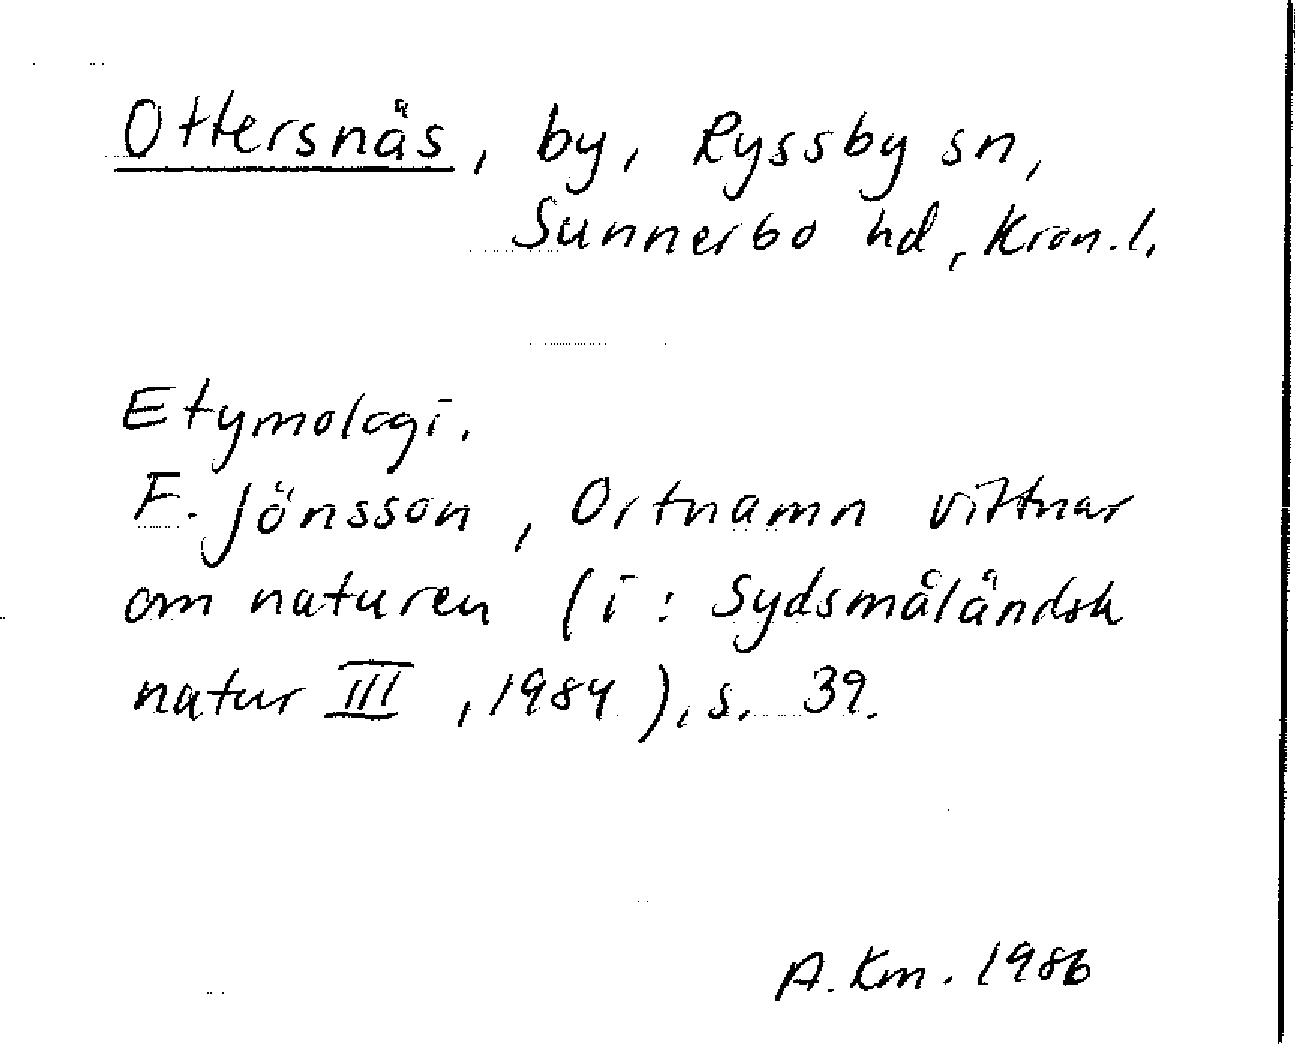 Ottersnäs, by, Ryssby sn,
Sunnerbo hd, Kron.l.
Etymologi.
F. Jönsson, Ortnamn vittnar
om naturen (i: Sydsmåländsk
natur III, 1984), s. 39.
A. Km. 1986